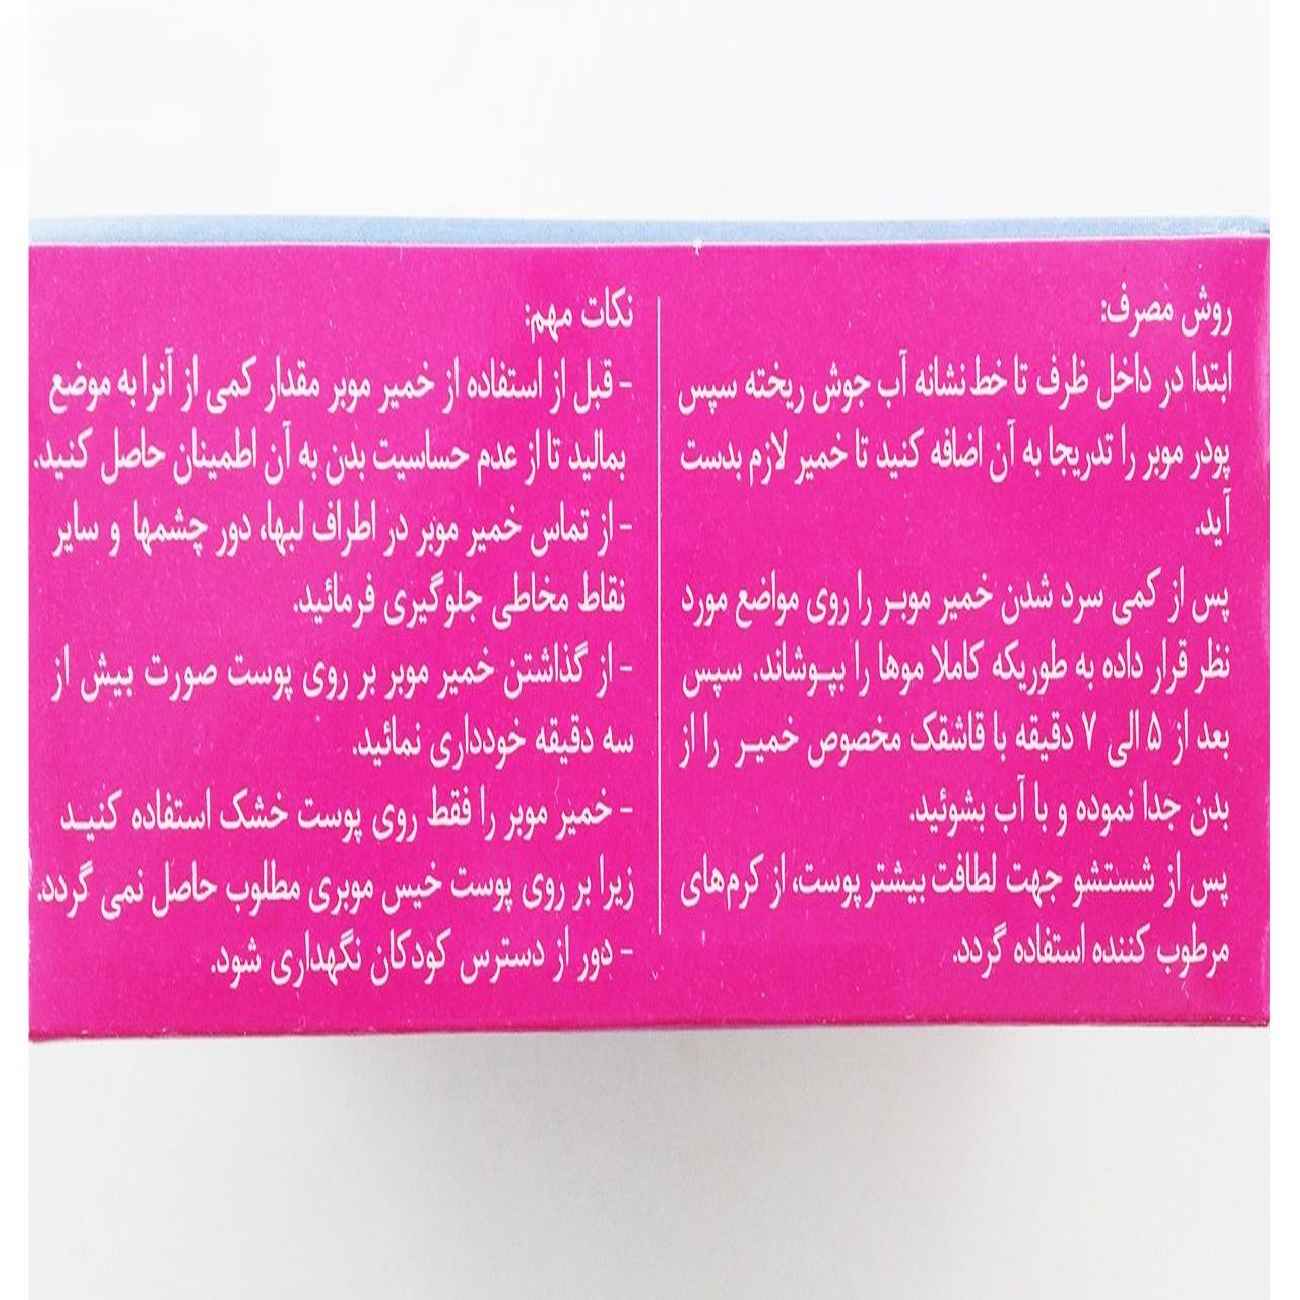 روش مصرف:
ابتدا در داخل ظرف تا خط نشانه آب جوش ریخته سپس
پودر موبر را تدریجا به آن اضافه کنید تا خمیر لازم بدست
آید.
پس از کمی سرد شدن خمیر موبر را روی مواضع مورد
نظر قرار داده به طوریکه کاملا موها را بپوشاند. سپس
بعد از ۵ الی ۷ دقیقه با قاشقک مخصوص خمیر را از
بدن جدا نموده و با آب بشوئید.
پس از شستشو جهت لطافت بیشتر پوست، از کرم‌های
مرطوب کننده استفاده گردد.
نکات مهم:
- قبل از استفاده از خمیر موبر مقدار کمی از آنرا به موضع
بمالید تا از عدم حساسیت بدن به آن اطمینان حاصل کنید.
- از تماس خمیر موبر در اطراف لبها، دور چشمها و سایر
نقاط مخاطی جلوگیری فرمائید.
- از گذاشتن خمیر موبر بر روی پوست صورت بیش از
سه دقیقه خودداری نمائید.
- خمیر موبر را فقط روی پوست خشک استفاده کنید
زیرا بر روی پوست خیس موبری مطلوب حاصل نمی گردد.
- دور از دسترس کودکان نگهداری شود.